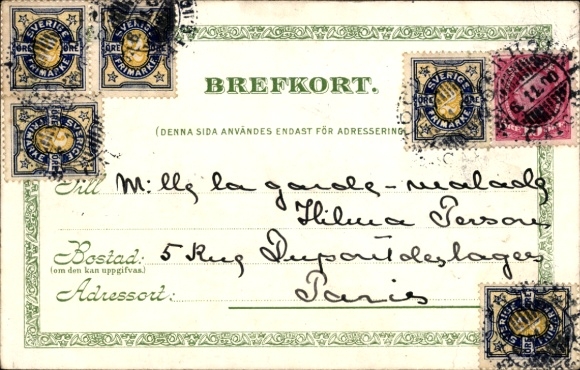 SVERIGE
ÖRE ÖRE
FRIMÄRKE
SVERIGE
ÖRE
FRIMÄRKE
SVERIGE
FRIMÄRKE
BREFKORT.
SVERIGE
ÖRE
FRIMÄRKE
6.11.00
(DENNA SIDA ANVÄNDES ENDAST FÖR ADRESSERING
Till M:lle la garde-malade
Hilma Person
Bostad: 5 Rue Dupont des loges
(om den kan uppgifvas.)
Adressort: Paris
SVERIGE
FRIMÄRKE